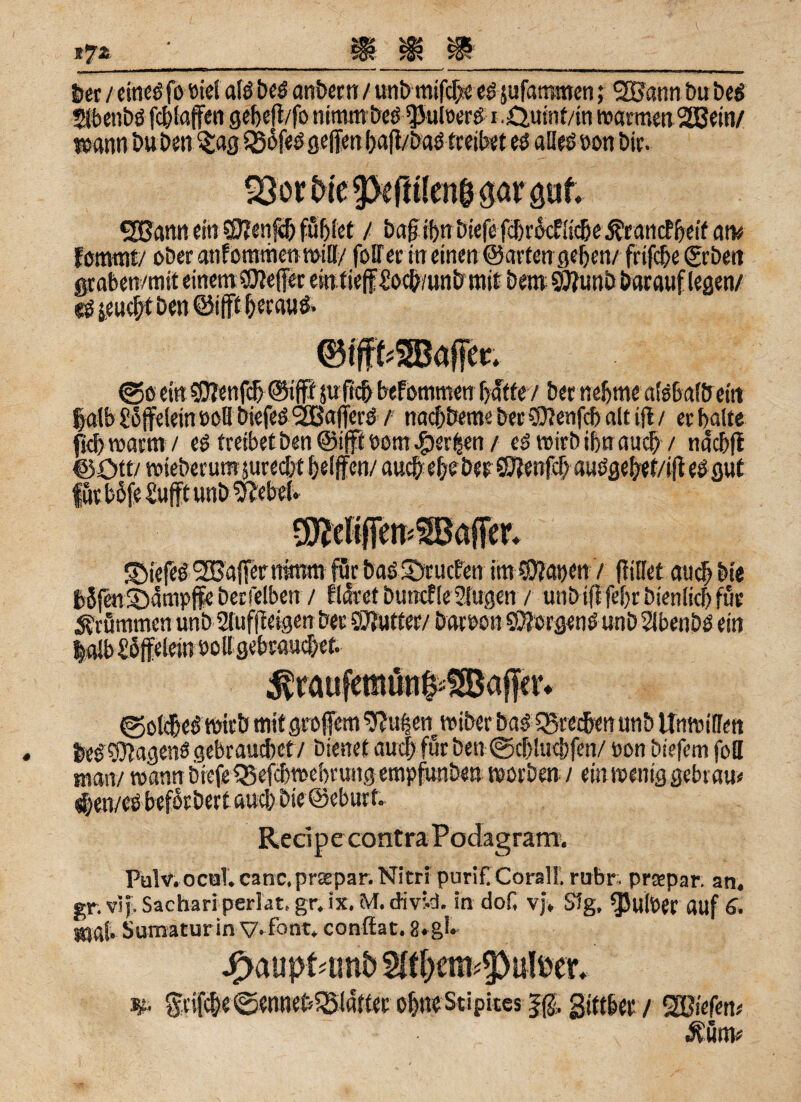 172
der / eines so viel als des andern / und mische es zusammen; Wann du des
Abends schlaffen gehest/so nimm des Pulvers 1. Quint/in warmen Wein/
wann du den Tag Böses gessen hast/das treibet es alles von dir.
Vor die Pestilentz gar gut.
Wann ein Mensch fühlet / daß ihn diese schröckliche Kranckheit an-
kommt/ oder ankommen will/ soll er in einen Garten gehen/ frische Erden
graben/mit einem Messer ein tieff Loch/und mit dem Mund darauf legen/
es zeucht den Gifft heraus.
Gifft-Wasser.
So ein Mensch Gifft zu sich bekommen hätte / der nehme alsbald ein
halb Löffelein voll dieses Wassers / nachdeme der Mensch alt ist / er halte
sich warm / es treibet den Gifft vom Hertzen / es wird ihn auch / nächst
GOtt/ wiederum zurecht helffen/ auch ehe der Mensch ausgehet/ist es gut
für böse Lufft und Nebel.
Melissen-Wasser.
Dieses Wasser nimm für das Drucken im Magen / stillet auch die
bösen Dämpffe derselben / kläret dunckle Augen / und ist sehr dienlich für
Krümmen und Aufsteigen der Mutter/ darvon Morgens und Abends ein
halb Löffelein voll gebrauchet.
Krausemüntz-Wasser.
Solches wird mit grossem Nutzen wider das Brechen und Unwillen
des Magens gebrauchet / dienet auch für den Schluchsen/ von diesem soll
man/ wann diese Beschwehrung empfunden worden / ein wenig gebrau-
chen/es befördert auch die Geburt.
Recipe contra Podagram.
Pulv. ocul. canc. præpar. Nitri purif. Corall. rubr. præpar. an.
gr. vij. Sachari perlat. gr. ix. M. divid. in dos. vj. Sig. Pulver auf 6.
mal. Sumatur in ▽. font. constat. 8. gl.
Haupt- und Athem-Pulver.
℞. Frische Sennet-Blätter ohne Stipites ℥ß. Zittber / Wiesen-
Küm-